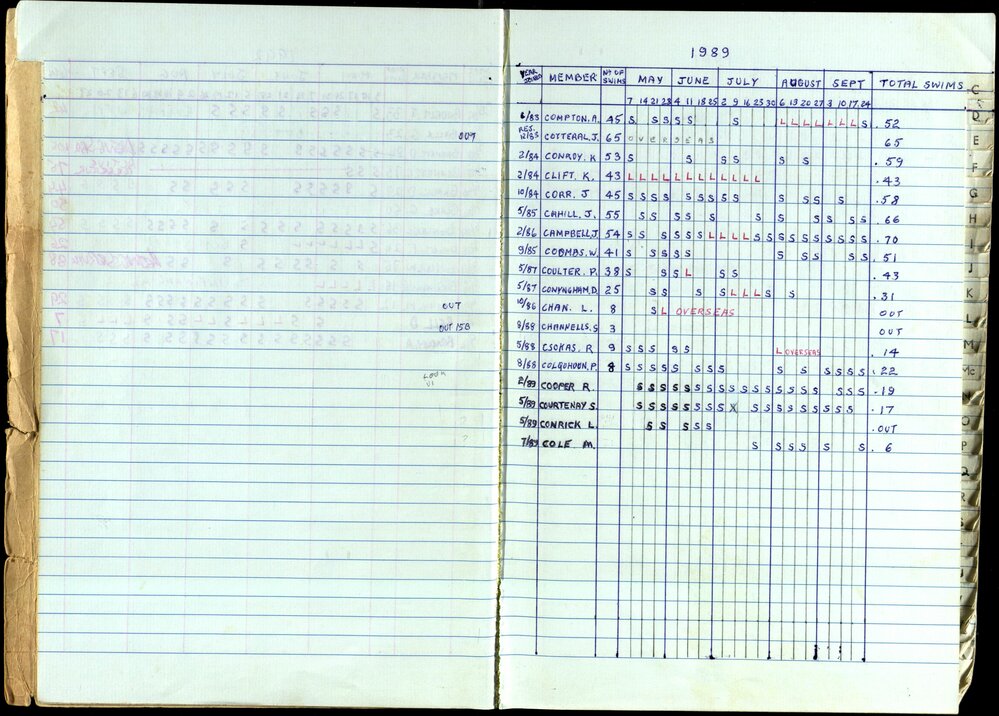 1989
YEAR JOINED MEMBER Nº OF SWIMS MAY JUNE JULY AUGUST SEPT TOTAL SWIMS
7 14 21 28 4 11 18 25 2 9 16 23 30 6 13 20 27 3 10 17 24
6/83 COMPTON, A. 45 S S S S S S L L L L L L L S . 52
OUT RES. 12/83 COTTERAL J. 65 OVERSEAS 65
2/84 CONROY. K 53 S S S S S S . 59
2/84 CLIFT, K. 43 L L L L L L L L L L L L . 43
10/84 CORR. J 45 S S S S S S S S S S S S S . 58
5/85 CAHILL, J. 55 S S S S S S S S S S S . 66
2/86 CAMPBELL J. 54 S S S S S S L L L L S S S S S S S S S S . 70
9/85 COOMBS. W. 41 S S S S S S S S S S . 51
5/87 COULTER. P. 38 S S S L S S . 43
5/87 CONYNGHAM, D. 25 S S S S L L L S S . 31
OUT 10/86 CHAN. L. 8 S L OVERSEAS OUT
OUT 15B 8/88 CHANNELLS. S 3 OUT
5/88 CSOKAS, R 9 S S S S S L OVERSEAS . 14
8/88 COLQUHOUN, P. 8 S S S S S S S S S S S S S S . 22
2/89 COOPER R. S S S S S S S S S S S S S S S S S S . 19
5/89 COURTENAY S. S S S S S S S S X S S S S S S S S S . 17
5/89 CONRICK L. S S S S S . OUT
7/89 COLE M. S S S S S S . 6
C
D
E
F
G
H
I
J
K
L
M
Mc
N
O
P
Q
R